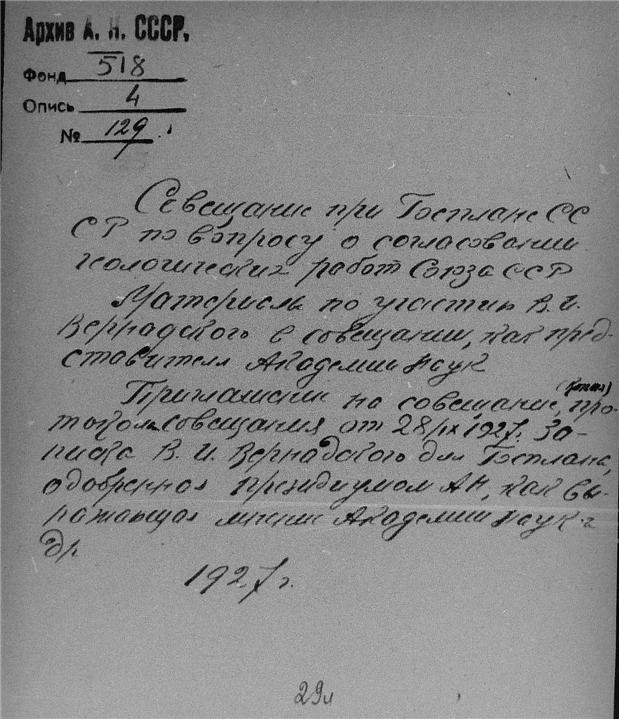 Архив А. Н. СССР.
Фонд 518
Опись 4
№ 129
Совещание при Госплане СС
СР по вопросу о согласовании
геологических работ Союза ССР
Материалы по участию В. И.
Вернадского в совещании, как пред-
ставителя Академии Наук
Приглашение на совещание, (копия) про-
токол совещания от 28/IX 1927. За-
писка В. И. Вернадского для Госплана,
одобренная президиумом АН, как вы-
ражающая мнение Академии Наук и
др
1927 г.
29л